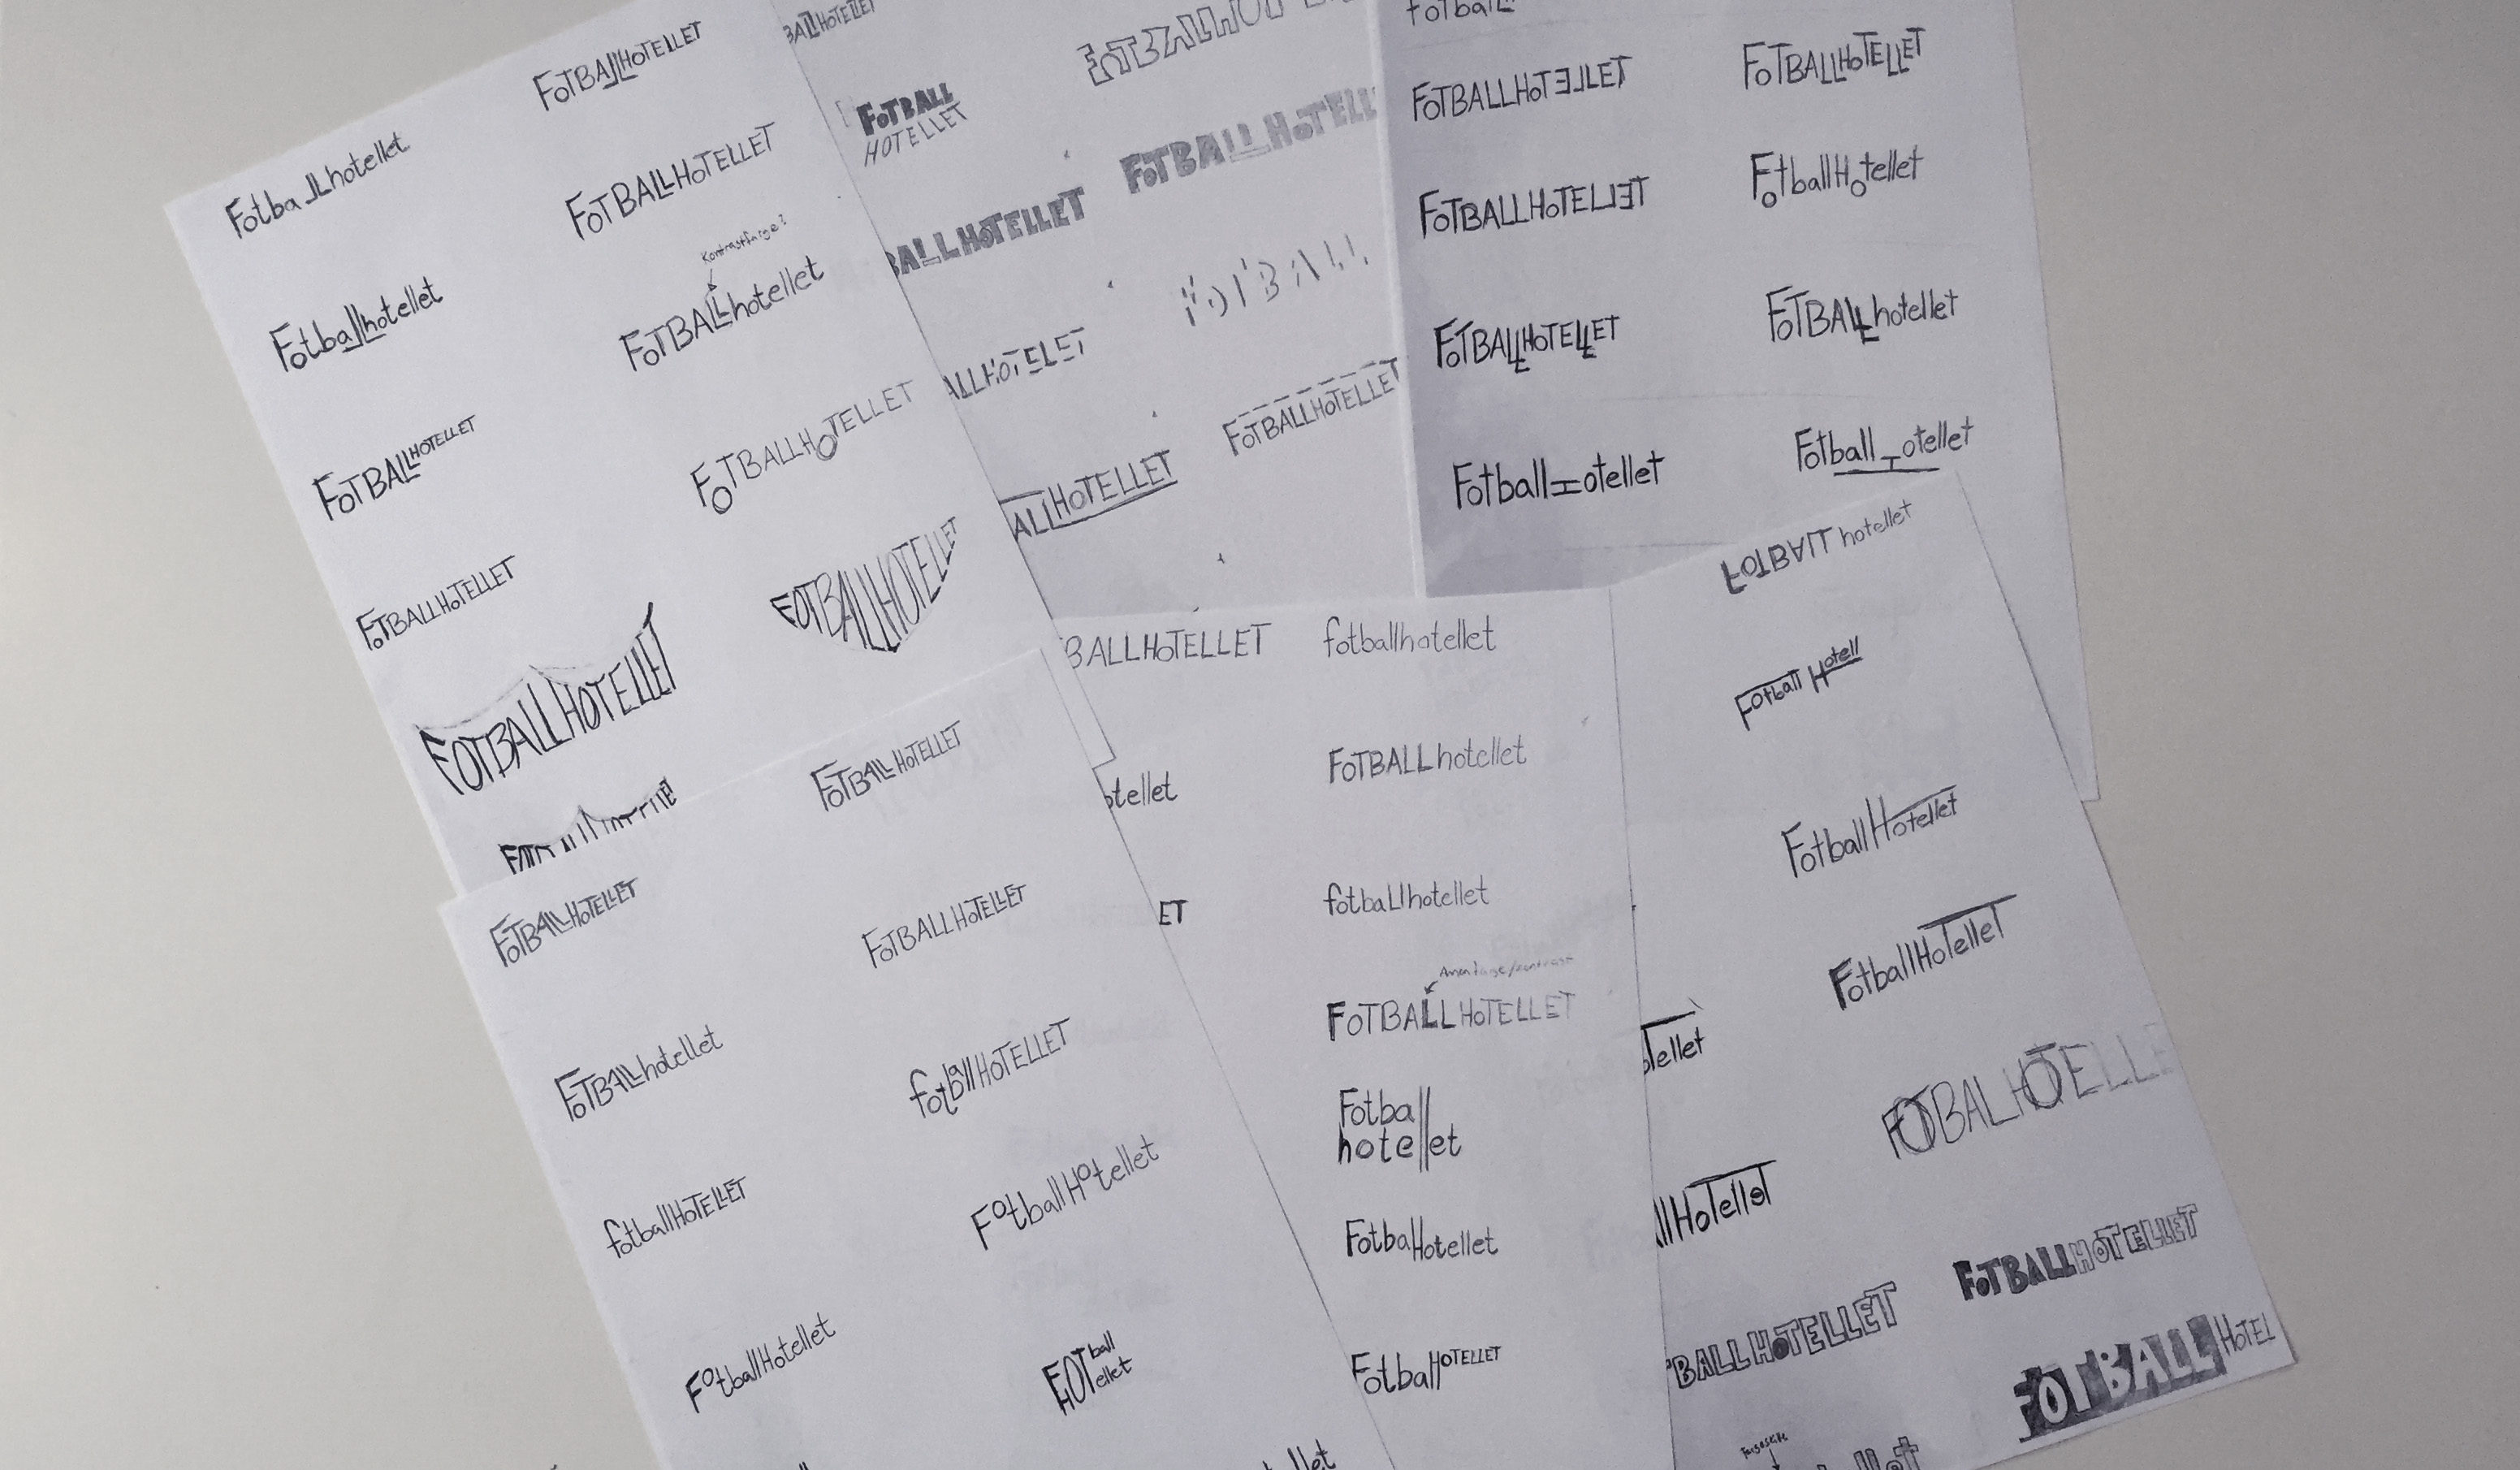 FOTBALLHOTELLET
Fotballhotellet
FOTBALLHOTELLET
Kontrastfarge?
Fotballhotellet
FOTBALLhotellet
FOTBALLHOTELLET
FOTBALLHOTELLET
FOTBALLHOTELLET
FOTBALLHOTELLET
FOTBALLHOTELLET
BALLHOTELLET
FOTBALL
HOTELLET
FOTBALLHOTELL
BALLHOTELLET
FOTBALL
ALLHOTELET
FOTBALLHOTELLET
ALLHOTELLET
FOTBALLHOTELLET
FOTBALLHOTELLET
FOTBALLHOTELLET
FotballHotellet
FOTBALLHOTELLET
FOTBALLhotellet
FotballHotellet
FotballHotellet
FOTBALLHOTELLET
FOTBALLHOTELLET
FOTBALLHOTELLET
FOTBALLhotellet
fotballHOTELLET
fotballHOTELLET
FotballHotellet
FotballHotellet
FOTball
ellet
BALLHOTELLET
fotballhotellet
otellet
FOTBALLhotellet
ET
fotballhotellet
FOTBALLHOTELLET
Fotball
hotellet
FotbaHotellet
FotballHOTELLET
FOTBALL hotellet
Fotball Hotell
FotballHotellet
FotballHoTellet
oTellet
FOTBALHOTELLE
llHoTellet
FOTBALLHOTELLET
BALLHOTELLET
FOTBALL HOTEL